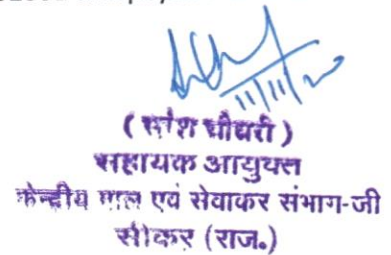 11/11/20
चौधरी )
सहायक आयुक्त
केन्द्रीय माल एवं सेवाकर संभाग-जी
सीकर (राज.)